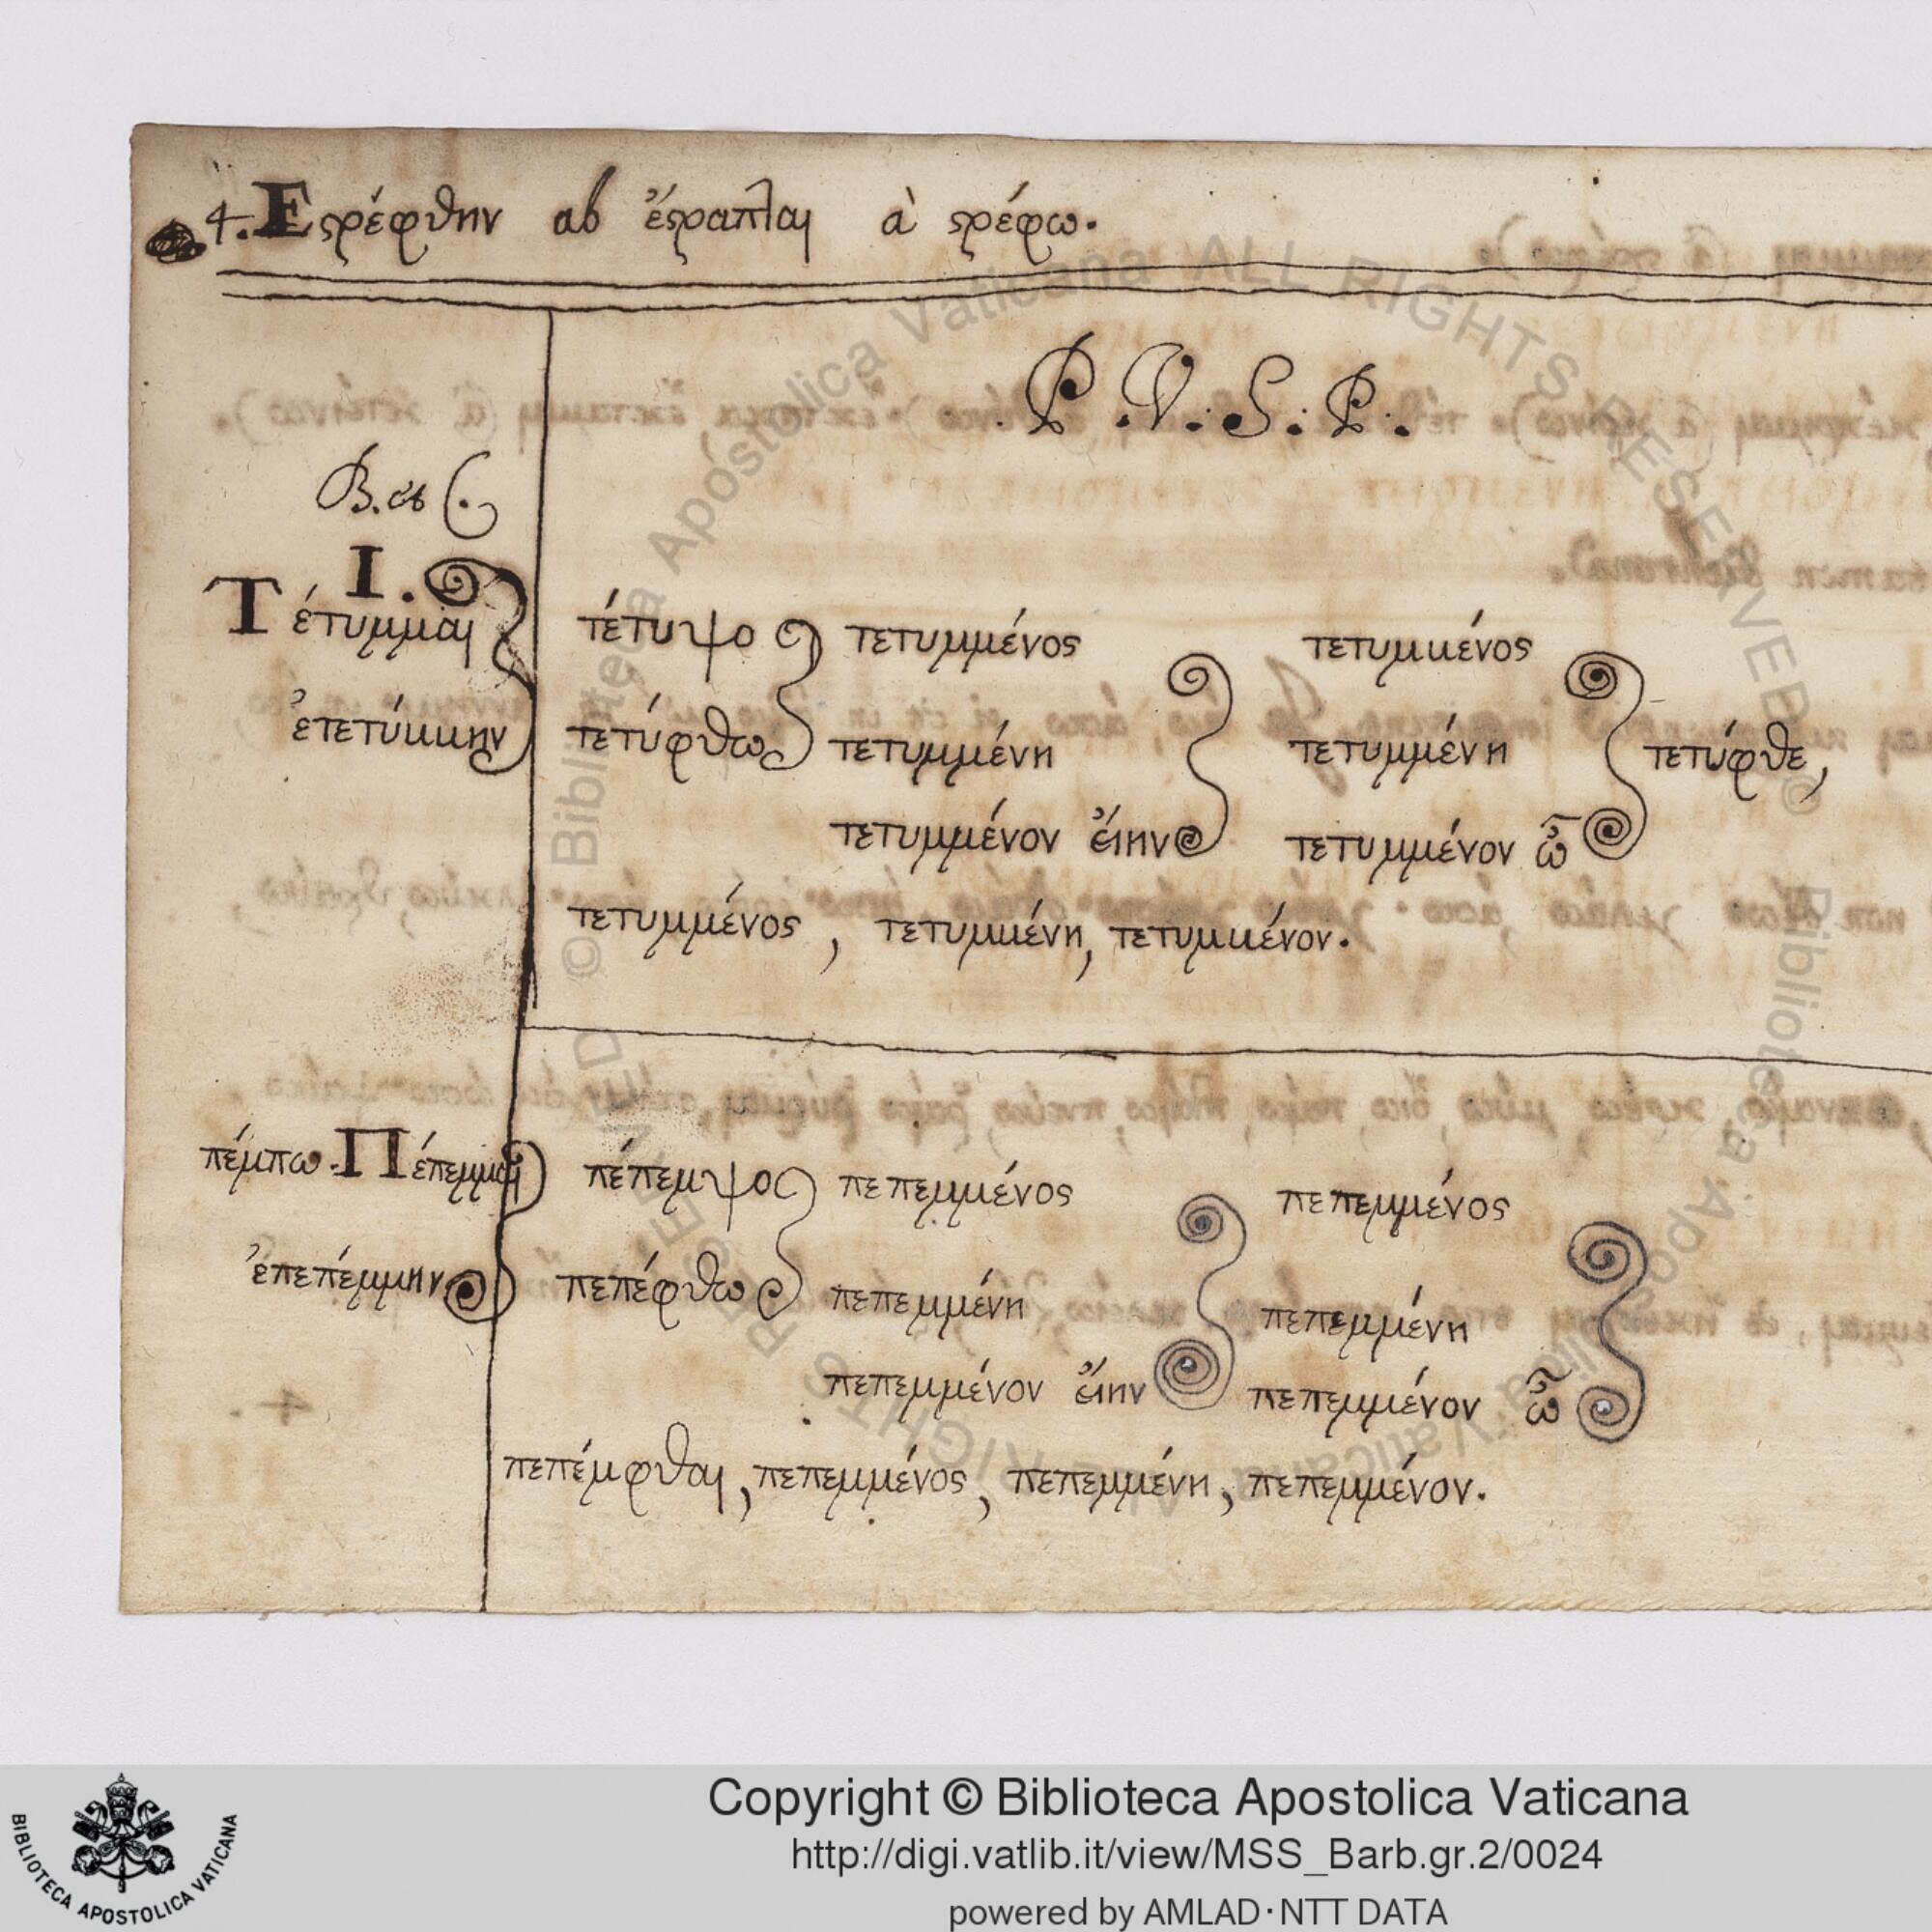 4. Εςρέφθην ab ἔςραπται à ςρέφω.
P. V. S. P.
B. ab
I.
Τέτυμμαι τέτυψο τετυμμένος τετυμμένος
ἐτετύμμην τετύφθω τετυμμένη τετυμμένη τετύφθε,
τετυμμένον ἔιην τετυμμένον ὦ
τετυμμένος, τετυμμένη, τετυμμένον.
πέμπω. Πέπεμμαι πέπεμψο πεπεμμένος πεπεμμένος
ἐπεπέμμην πεπέφθω πεπεμμένη πεπεμμένη
πεπεμμένον ἔιην πεπεμμένον ὦ
πεπέμφθαι, πεπεμμένος, πεπεμμένη, πεπεμμένον.
© Biblioteca Apostolica Vaticana ALL RIGHTS RESERVED
© Biblioteca Apostolica Vaticana ALL RIGHTS RESERVED
BIBLIOTECA APOSTOLICA VATICANA
Copyright © Biblioteca Apostolica Vaticana
http://digi.vatlib.it/view/MSS_Barb.gr.2/0024
powered by AMLAD·NTT DATA